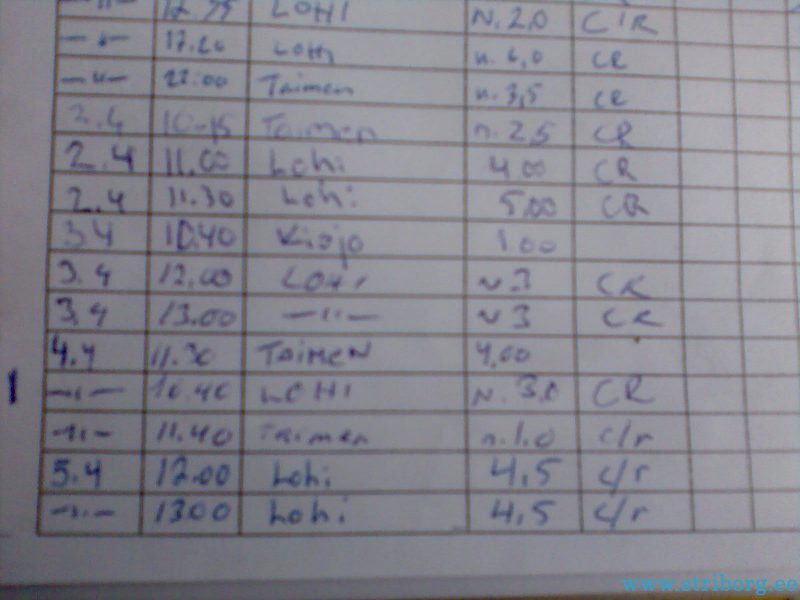 —"— LOHI N. 2.0 C/R
—"— 17.20 Lohi n. 6,0 CR
—"— 22:00 Taimen n. 3,5 CR
2.4 10-15 Taimen n. 2,5 CR
2.4 11.00 Lohi 4,00 CR
2.4 11.30 Lohi 5,00 CR
3.4 10.40 Kirjo 1.00
3.4 12.00 LOHI N 3 CR
3.4 13.00 —"— N 3 CR
4.4 11.30 TAIMEN 4,00
1 —"— LOHI N. 3,0 CR
—"— 11.40 Taimen n. 1.0 c/r
5.4 12.00 Lohi 4,5 c/r
—"— 1300 Lohi 4,5 c/r
www.striborg.ee